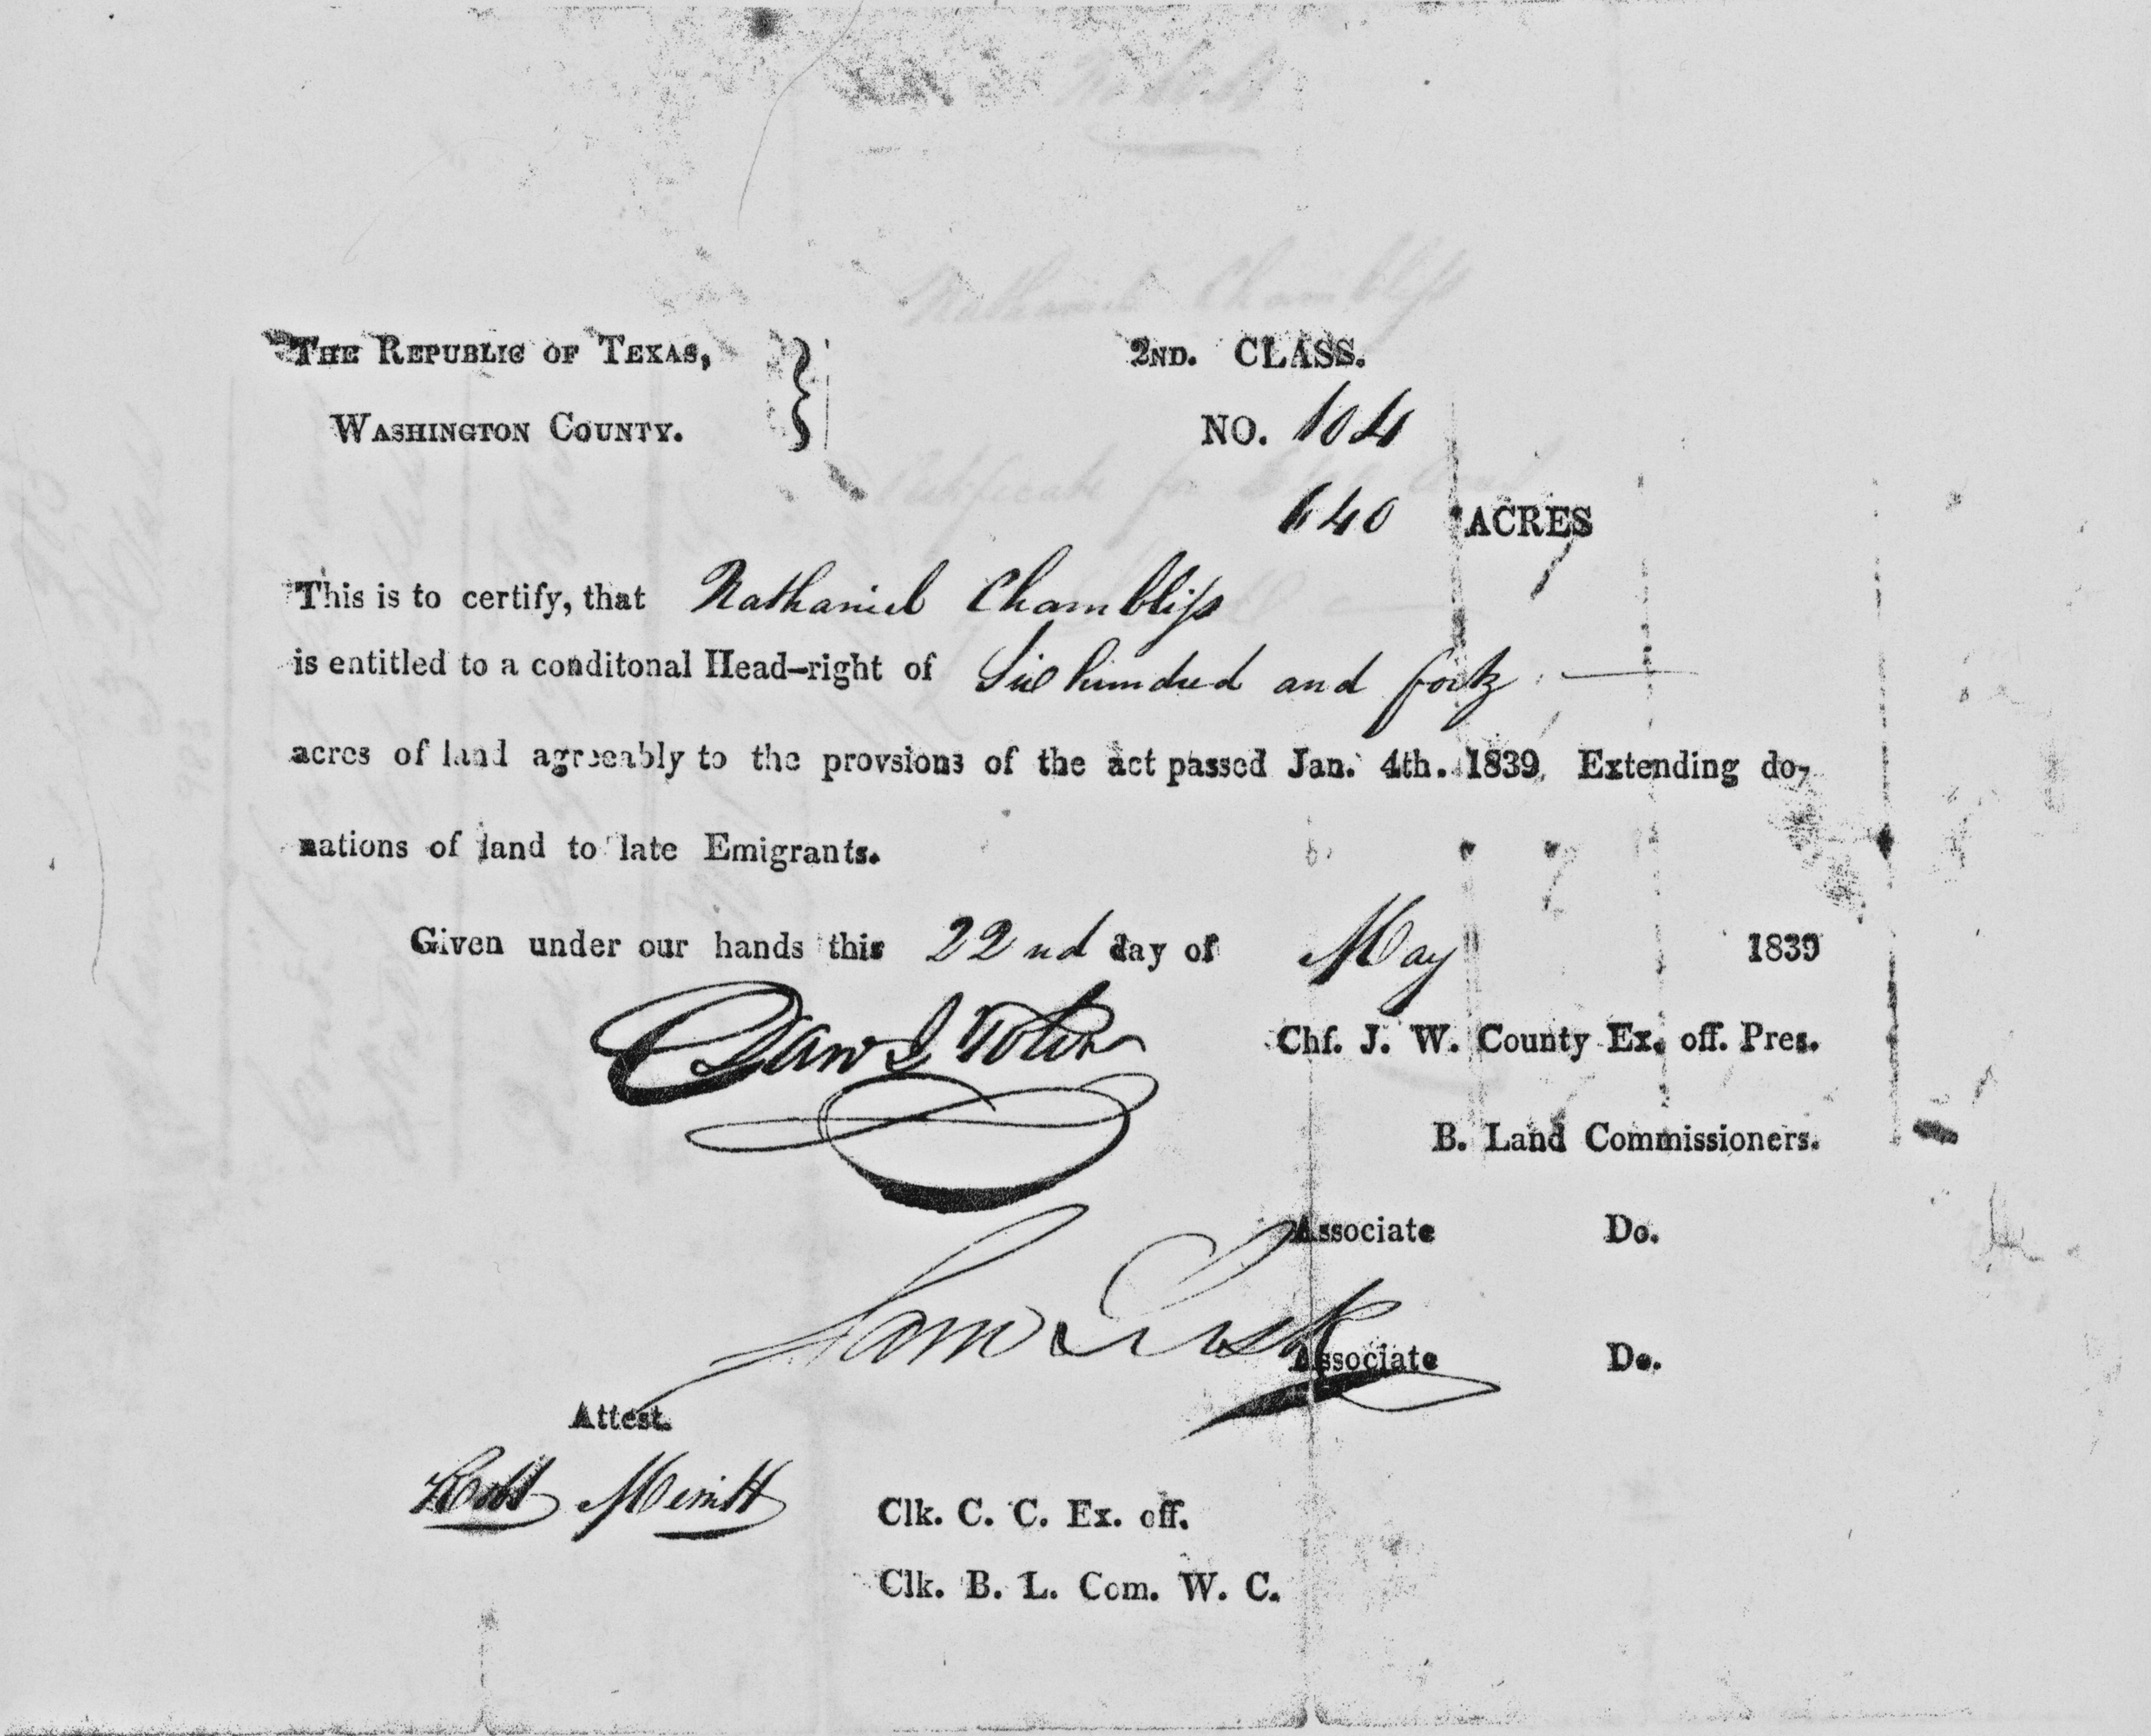 THE REPUBLIC OF TEXAS,
WASHINGTON COUNTY.
2ND. CLASS.
NO. 104
640 ACRES
This is to certify, that Nathaniel Chambliss
is entitled to a conditonal Head-right of Six hundred and forty
acres of land agreeably to the provsions of the act passed Jan. 4th. 1839, Extending do-
nations of land to late Emigrants.
Given under our hands this 22nd day of May 1839
Chf. J. W. County Ex. off. Pres.
B. Land Commissioners.
Associate Do.
Sam Lusk
Associate Do.
Attest.
Robt Merritt
Clk. C. C. Ex. off.
Clk. B. L. Com. W. C.